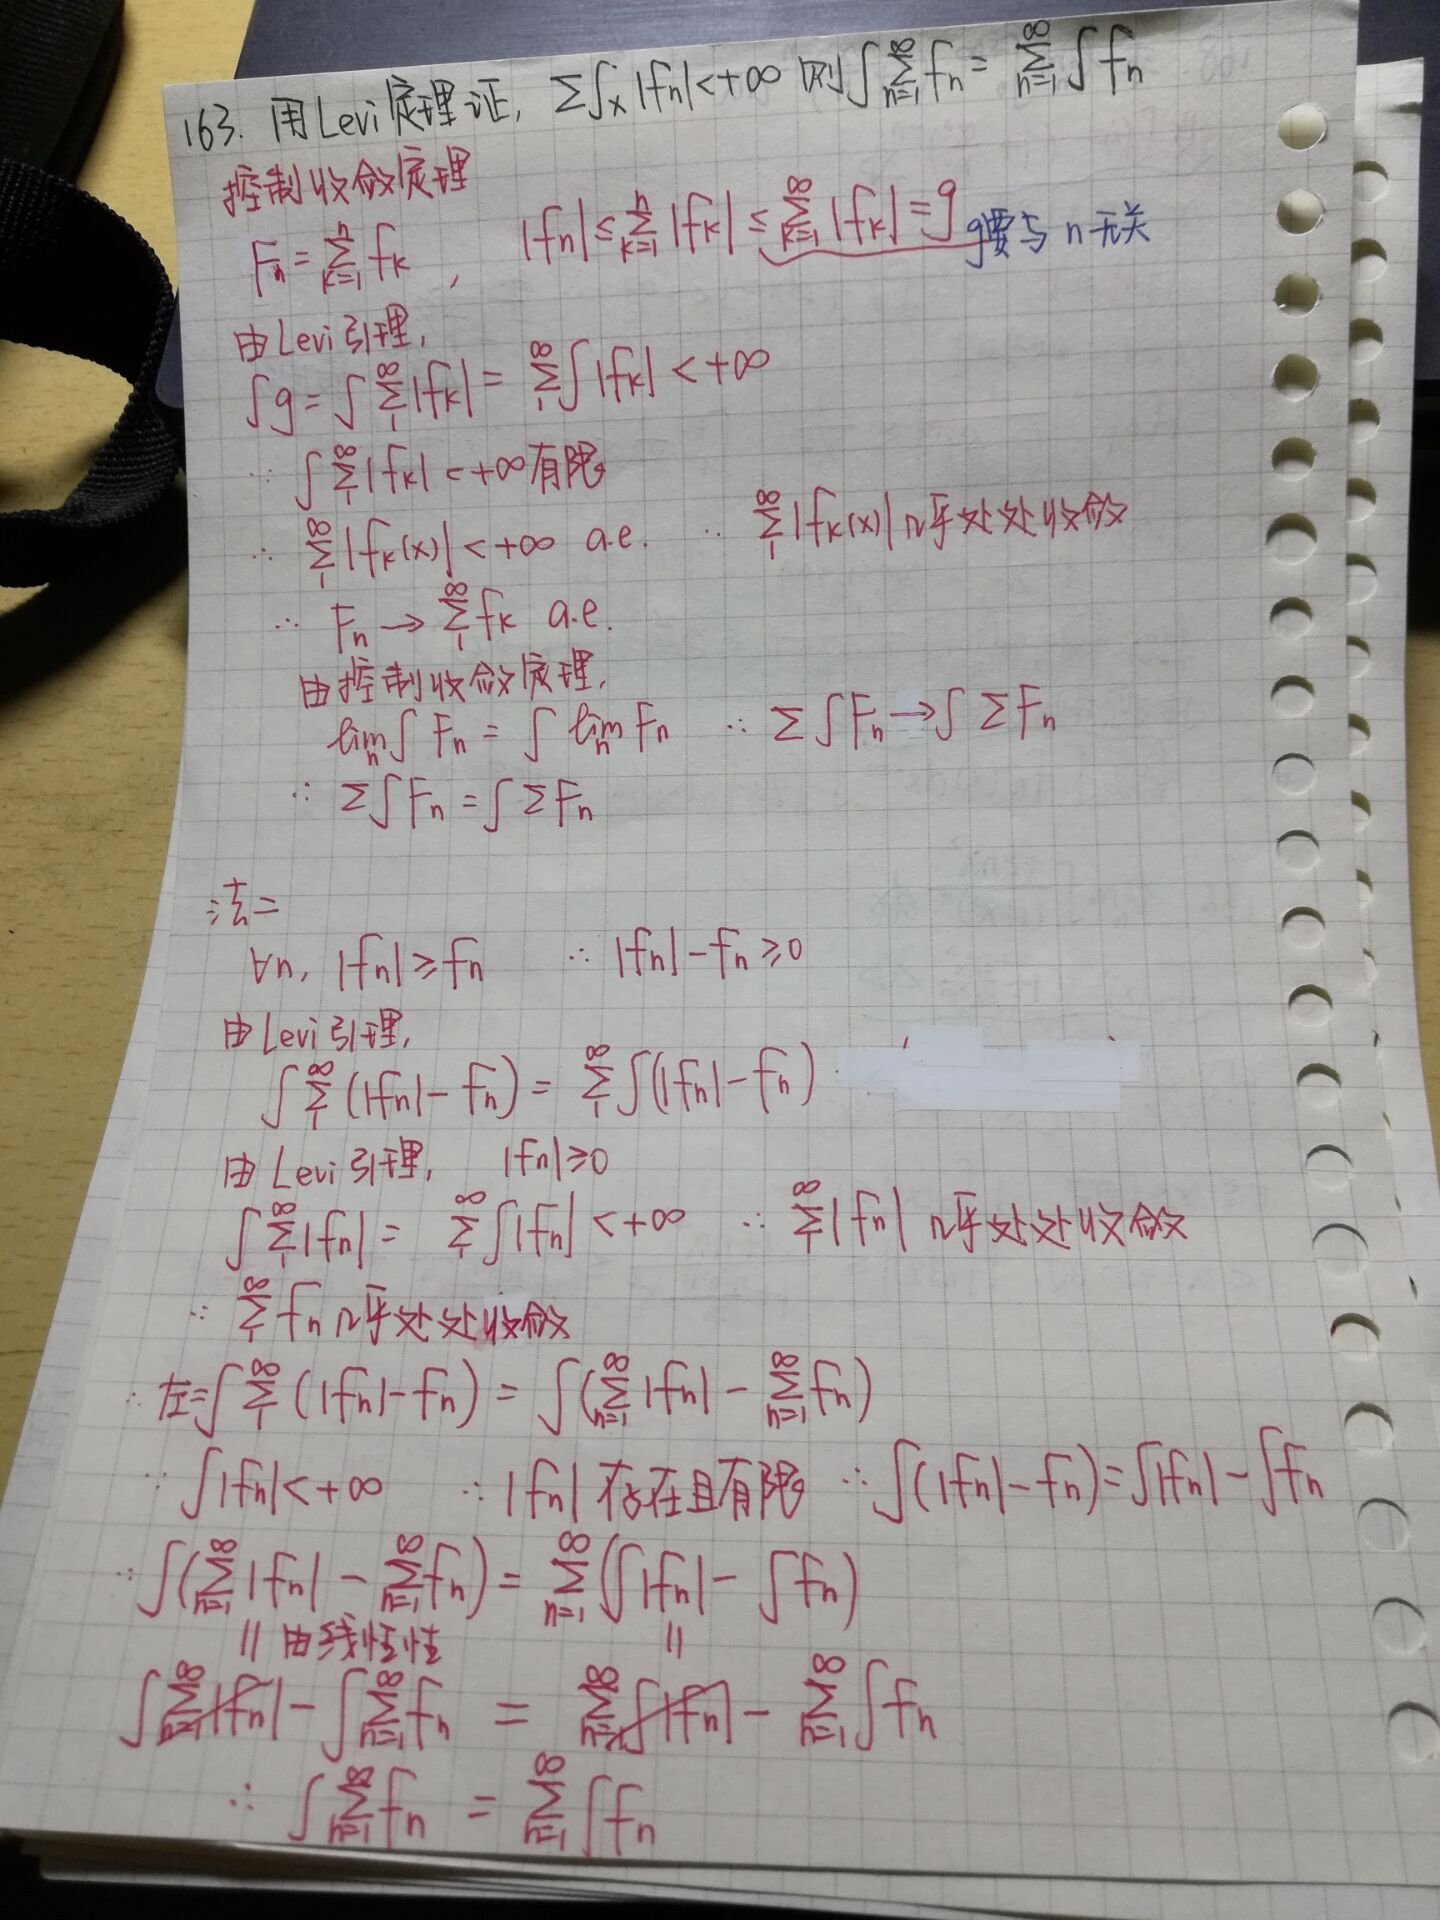 163. 用Levi定理证, Σ∫_X |fn| < +∞ 则 ∫ Σ_{n=1}^∞ fn = Σ_{n=1}^∞ ∫ fn
控制收敛定理
Fn = Σ_{k=1}^n fk , |fn| ≤ Σ_{k=1}^n |fk| ≤ Σ_{k=1}^∞ |fk| = g g要与n无关
由Levi引理,
∫g = ∫ Σ_1^∞ |fk| = Σ_1^∞ ∫ |fk| < +∞
∵ ∫ Σ_1^∞ |fk| < +∞ 有限
∴ Σ_1^∞ |fk(x)| < +∞ a.e. ∴ Σ_1^∞ |fk(x)| 几乎处处收敛
∴ Fn → Σ_1^∞ fk a.e.
由控制收敛定理,
lim_n ∫ Fn = ∫ lim_n Fn ∴ Σ ∫ Fn → ∫ Σ Fn
∴ Σ ∫ Fn = ∫ Σ Fn
法二
∀n, |fn| ≥ fn ∴ |fn| - fn ≥ 0
由Levi引理,
∫ Σ_1^∞ (|fn| - fn) = Σ_1^∞ ∫ (|fn| - fn)
由Levi引理, |fn| ≥ 0
∫ Σ_1^∞ |fn| = Σ_1^∞ ∫ |fn| < +∞ ∴ Σ_1^∞ |fn| 几乎处处收敛
∴ Σ_1^∞ fn 几乎处处收敛
∴ 左 = ∫ Σ_1^∞ (|fn| - fn) = ∫ (Σ_{n=1}^∞ |fn| - Σ_{n=1}^∞ fn)
∵ ∫ |fn| < +∞ ∴ |fn| 存在且有限 ∴ ∫ (|fn| - fn) = ∫ |fn| - ∫ fn
∴ ∫ (Σ_{n=1}^∞ |fn| - Σ_{n=1}^∞ fn) = Σ_{n=1}^∞ (∫ |fn| - ∫ fn)
|| 由线性性 ||
∫ Σ_{n=1}^∞ |fn| - ∫ Σ_{n=1}^∞ fn = Σ_{n=1}^∞ ∫ |fn| - Σ_{n=1}^∞ ∫ fn
∴ ∫ Σ_{n=1}^∞ fn = Σ_{n=1}^∞ ∫ fn